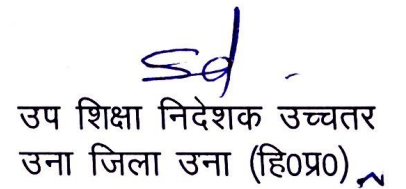 sd
उप शिक्षा निदेशक उच्चतर
उना जिला उना (हि०प्र०)